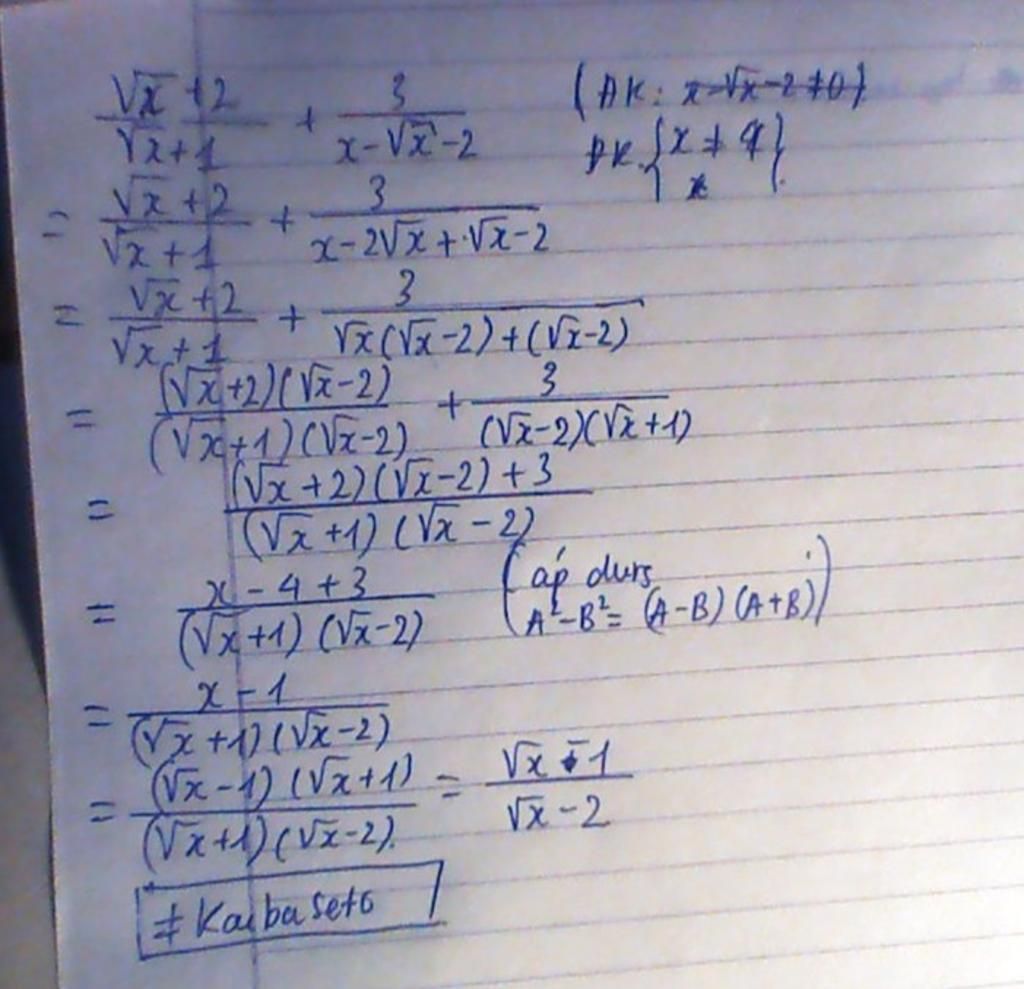 (√x+2)/(√x+1) + 3/(x-√x-2) (ĐK: x-√x-2≠0)
ĐK: {x≠4}
= (√x+2)/(√x+1) + 3/(x-2√x+√x-2)
= (√x+2)/(√x+1) + 3/(√x(√x-2)+(√x-2))
= (√x+2)(√x-2)/(√x+1)(√x-2) + 3/(√x-2)(√x+1)
= ((√x+2)(√x-2)+3)/(√x+1)(√x-2)
= (x-4+3)/(√x+1)(√x-2) (áp dụng
A²-B²= (A-B)(A+B))
= (x-1)/(√x+1)(√x-2)
= (√x-1)(√x+1)/(√x+1)(√x-2) = (√x-1)/(√x-2)
# Kaiba Seto